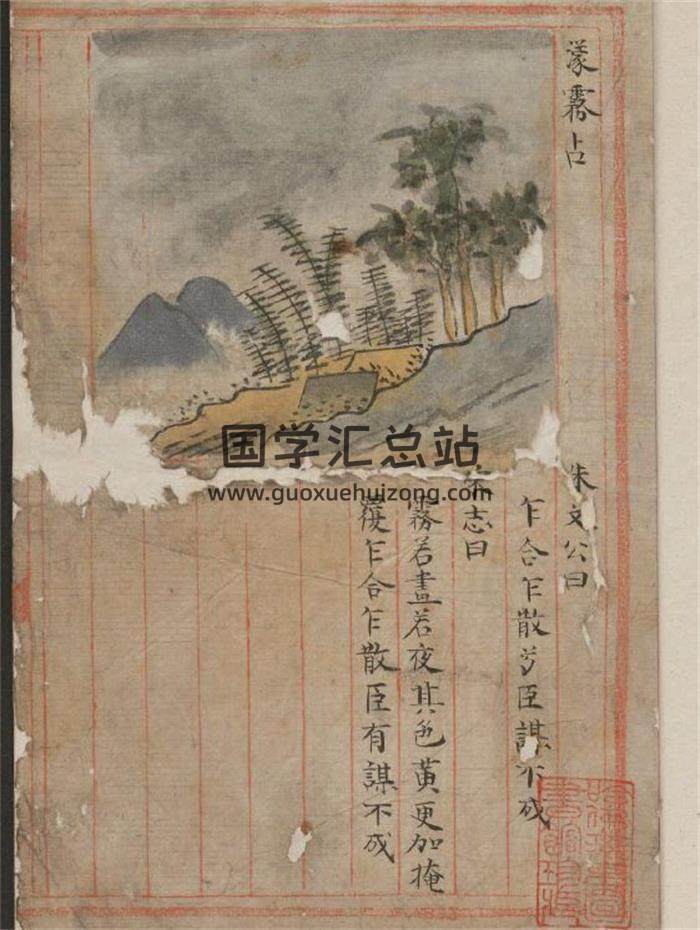 濛霧占
朱文公曰
乍合乍散芳臣謀不成
宋志曰
霧若晝若夜其色黃更加掩
覆乍合乍散臣有謀不成
国学汇总站
www.guoxuehuizong.com